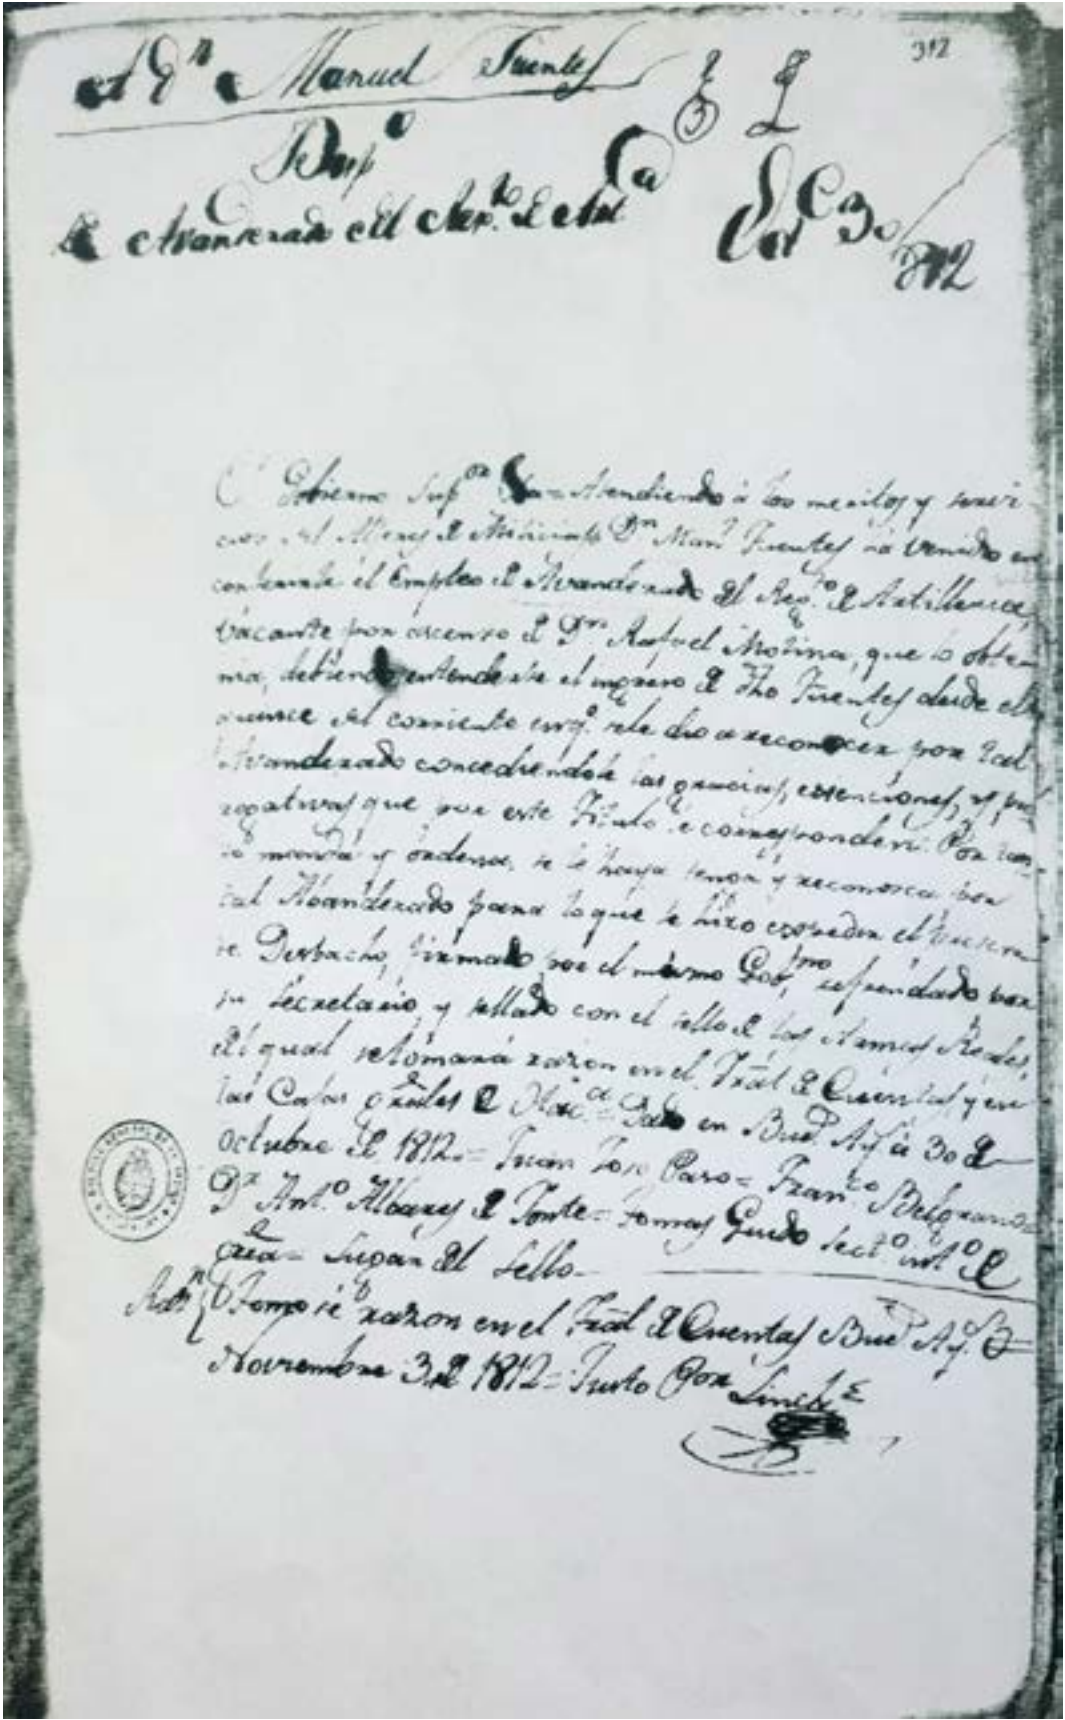 312
A Dn Manuel Fuentes
Desp o
de Avanderado del Regto de Arta
Oc e 30/812
El Gobierno Supor &a = Atendiendo á los meritos y servi-
cios del Alferes de Dn Manl Fuentes ha venido en
conferirle el Empleo de Avanderado del Regto de Artilleria,
vacante por ascenso de Dn Rafael Molina, que lo obte-
nia, debiendo entenderse el ingreso de dho Fuentes desde el
quince del corriente en qe se le dio a reconocer por tal
Avanderado concediendole las gracias, esenciones, y pre-
rogativas que por este Titulo le corresponden. Por tan-
to manda y ordena, se le haya tenga y reconosca por
tal Abanderado para lo que le hizo expedir el presen-
te Despacho, firmado por el mismo Gobno, refrendado por
su Secretario, y sellado con el sello de las Armas Reales,
del qual se tomará razon en el Trāl de Cuentas y en
las Caxas grāles de Hacda = Dado en Bues Ays á 30 de
octubre de 1812 = Juan José Paso = Franco Belgrano =
Dr Anto Albares de Jonte = Tomas Guido Secto into de
grra = Lugar del Sello
Razn Tomose razon en el Trāl de Cuentas Bues Ays
Noviembre 3 de 1812 = Justo Por Linch =